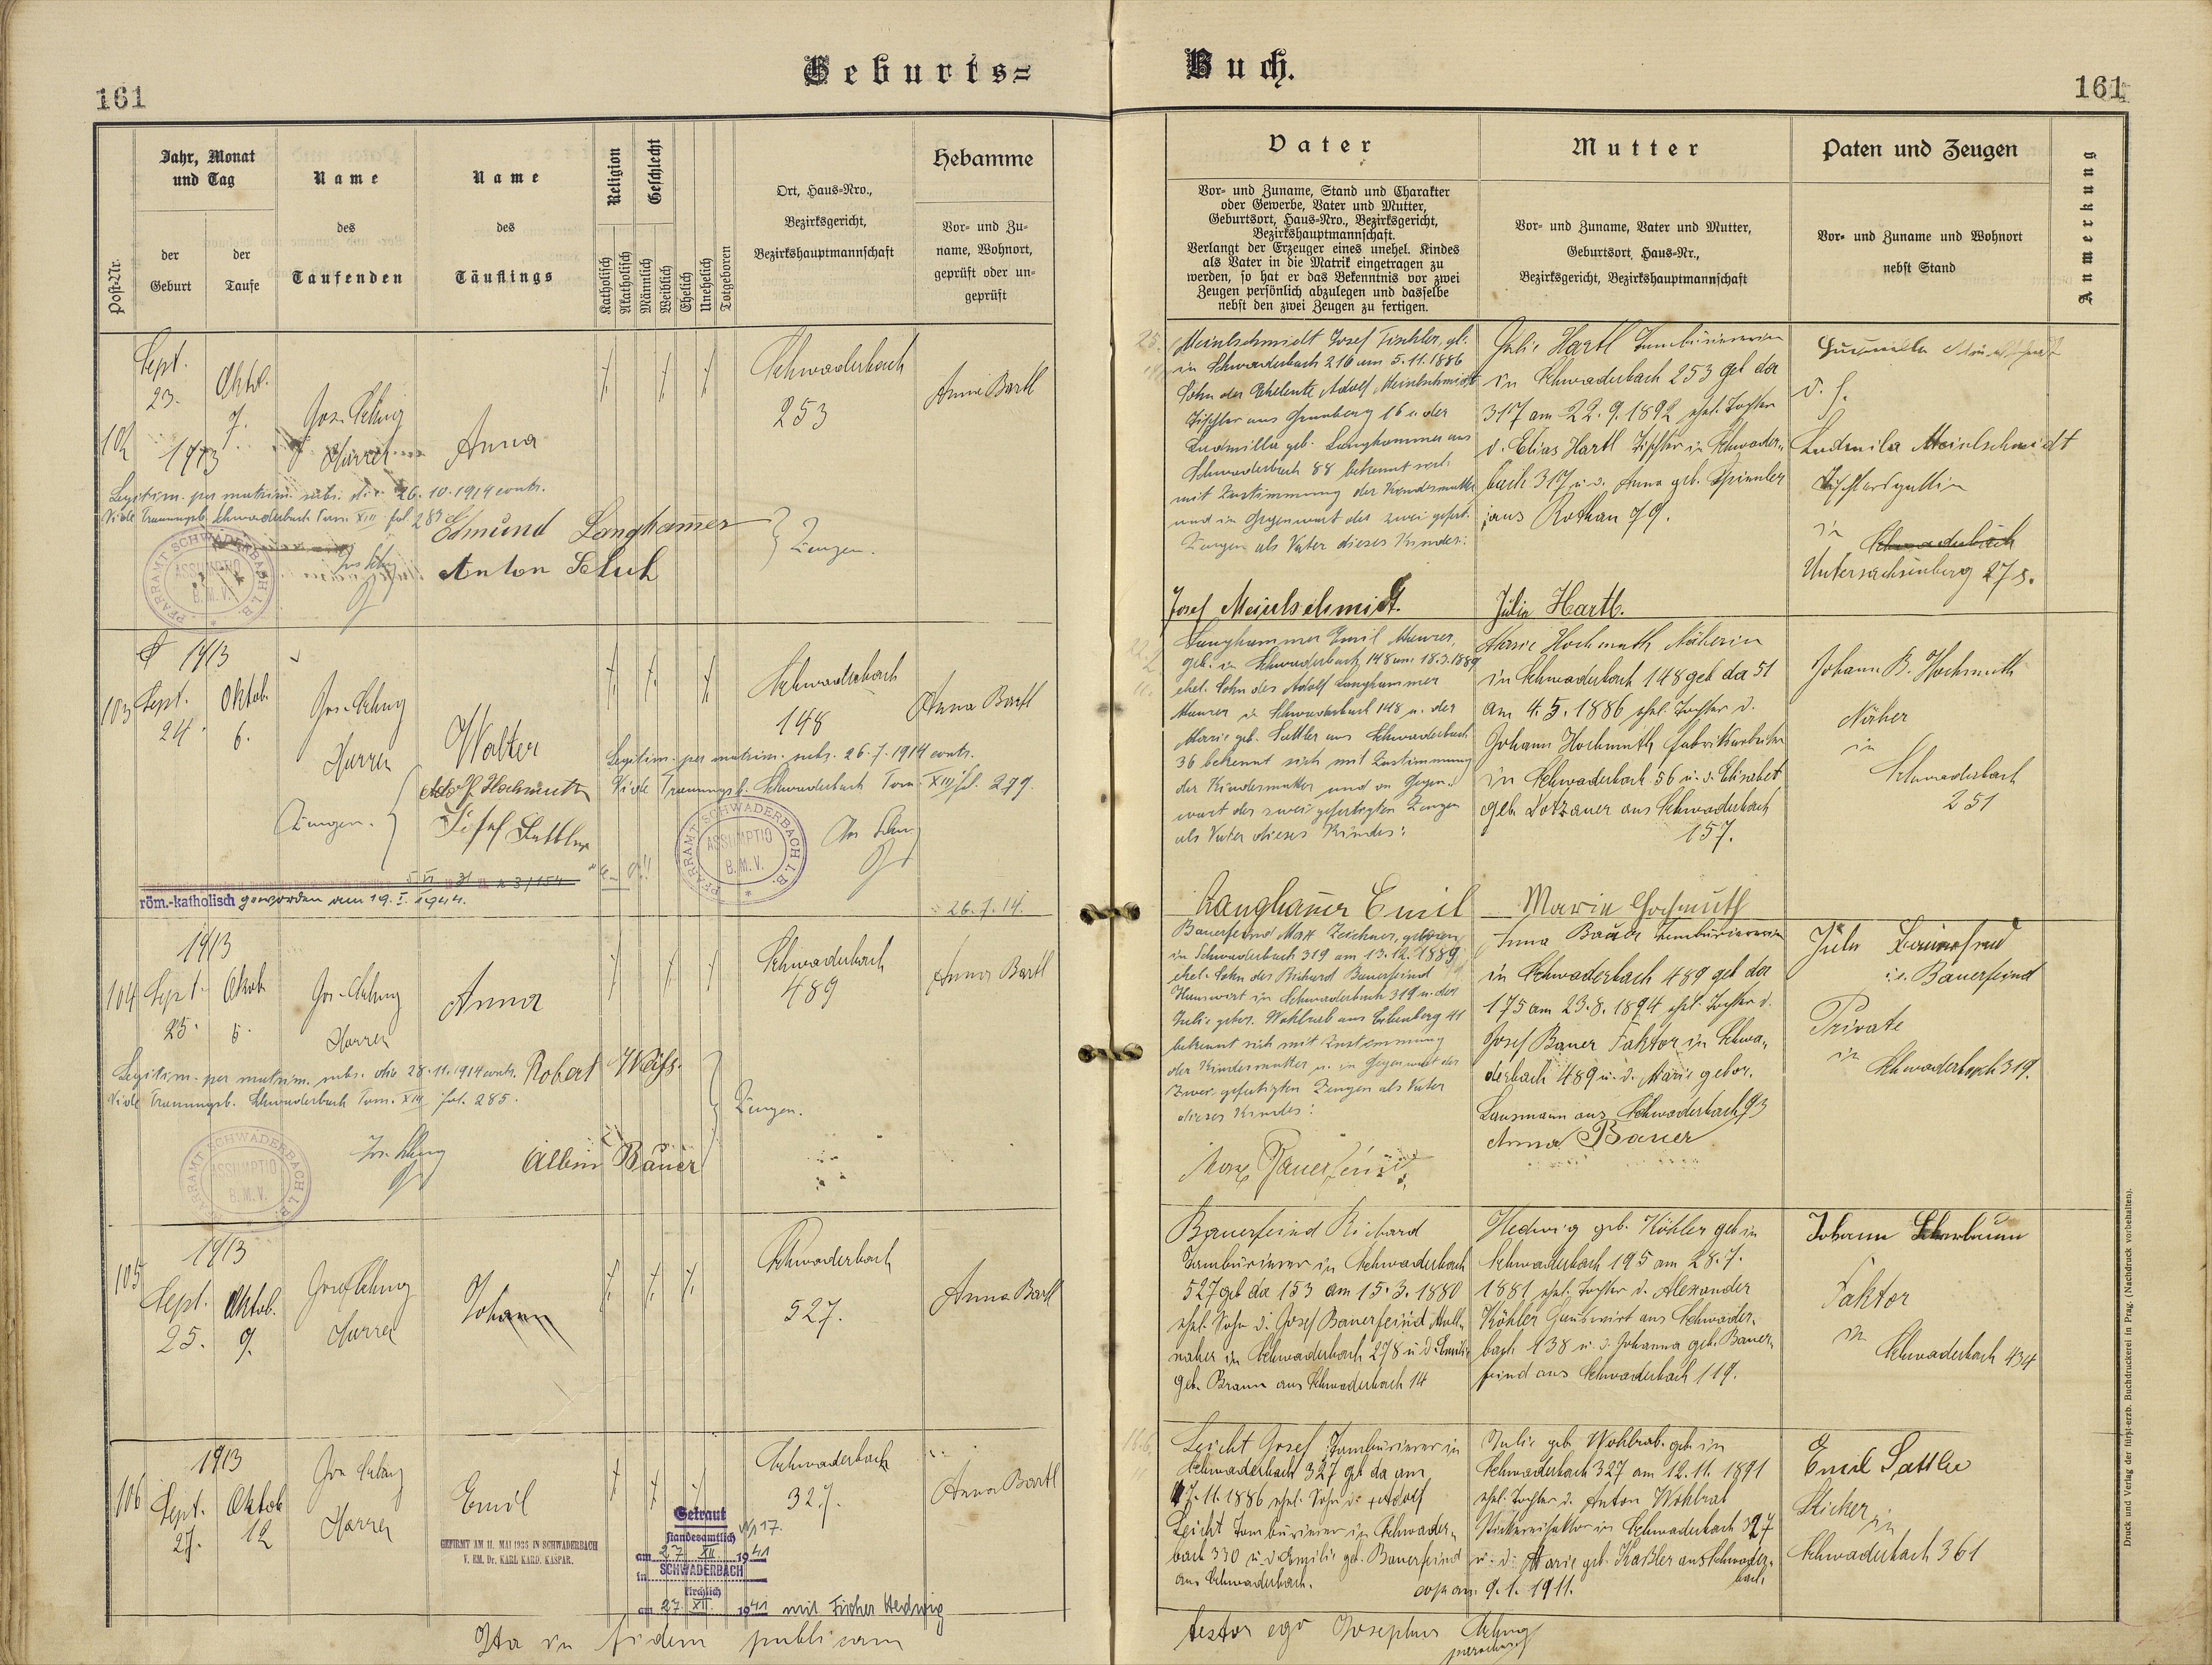 Geburts=
Buch.
161
161
Post-Nr.
Jahr, Monat
und Tag
der
Geburt
der
Taufe
Name
des
Taufenden
Name
des
Täuflings
Religion
Katholisch
Akatholisch
Geschlecht
Männlich
Weiblich
Ehelich
Unehelich
Totgeboren
Ort, Haus-Nro.,
Bezirksgericht,
Bezirkshauptmannschaft
Hebamme
Vor- und Zu-
name, Wohnort,
geprüft oder un-
geprüft
Vater
Vor- und Zuname, Stand und Charakter
oder Gewerbe, Vater und Mutter,
Geburtsort, Haus-Nro., Bezirksgericht,
Bezirkshauptmannschaft.
Verlangt der Erzeuger eines unehel. Kindes
als Vater in die Matrik eingetragen zu
werden, so hat er das Bekenntnis vor zwei
Zeugen persönlich abzulegen und dasselbe
nebst den zwei Zeugen zu fertigen.
Mutter
Vor- und Zuname, Vater und Mutter,
Geburtsort, Haus-Nr.,
Bezirksgericht, Bezirkshauptmannschaft
Paten und Zeugen
Vor- und Zuname und Wohnort
nebst Stand
Anmerkung
102
Sept.
23.
1913
Oktob.
7.
Anna
Schwaderbach
253
Anna Bartl
Legitim. per matrim. subs. die 26.10.1914 contr.
Vide Trauungsb. Schwaderbach Tom. XIII fol. 283
Edmund Langhammer
Anton
Zeugen.
PFARRAMT SCHWADERBACH I.B.
ASSUMPTIO
B.M.V.
Meinlschmidt Josef Tischler, gb.
in Schwaderbach 216 am 5.11.1886
Sohn der Eheleute Adolf Meinlschmidt
Tischler aus Grünberg 16 u. der
Ludmilla geb. Langhammer aus
Schwaderbach 88 bekennt sich
mit Zustimmung der Kindesmutter
und in Gegenwart der zwei gefert.
Zeugen als Vater dieses Kindes:
Josef Meinlschmidt.
Julie Hartl Tambouriererin
in Schwaderbach 253 geb da
317 am 22.9.1892 ehel. Tochter
d. Elias Hartl Tischler in Schwader-
bach 317 u. d. Anna geb.
aus Rothau 79.
Julie Hartl.
d. h.
Ludmila Meinlschmidt
Tischlersgattin
in
Schwaderbach
Untersachsenberg 275.
103
1913
Sept.
24.
Oktob.
6.
Walter
Schwaderbach
148
Anna Bartl
Legitim. per matrim. subs. 26.7.1914 contr.
Vide Trauungsb. Schwaderbach Tom. XIII fol. 279.
Zeugen.
Adolf Hochmuth
Josef Sattler
PFARRAMT SCHWADERBACH I.B.
ASSUMPTIO
B.M.V.
röm.-katholisch geworden am 19.I.1944.
26.7.14.
Langhammer Emil Maurer,
geb. in Schwaderbach 148 am 18.3.1889
ehel. Sohn des Adolf Langhammer
Maurer in Schwaderbach 148 u. der
Marie geb. Sattler aus Schwaderbach
36 bekennt sich mit Zustimmung
der Kindesmutter und in Gegen-
wart der zwei gefertigten Zeugen
als Vater dieses Kindes:
Langhamer Emil
Marie Hochmuth Näherin
in Schwaderbach 148 geb da 51
am 4.5.1886 ehel. Tochter d.
Johann Hochmuth Fabriksarbeiter
in Schwaderbach 56 u. d. Elisabet
geb. Lotzauer aus Schwaderbach
157.
Marie Hochmuth
Johann B. Hochmuth
Näher
in
Schwaderbach
251
104
1913
Sept.
25.
Oktob.
5.
Anna
Schwaderbach
489
Anna Bartl
Legitim. per matrim. subs. die 28.11.1914 contr.
Vide Trauungsb. Schwaderbach Tom. XIII fol. 285.
Robert
Albin Bauer
Zeugen.
PFARRAMT SCHWADERBACH I.B.
ASSUMPTIO
B.M.V.
Bauerfeind Max Zeichner, geboren
in Schwaderbach 319 am 13.12.1889
ehel. Sohn des Richard Bauerfeind
Hauswirt in Schwaderbach 319 u. der
Julie gebor. Wohlrab aus Eibenberg 41
bekennt sich mit Zustimmung
der Kindesmutter u. in Gegenwart der
zwei gefertigten Zeugen als Vater
dieses Kindes:
Max Bauerfeind
Anna Bauer Tambouriererin
in Schwaderbach 489 geb da
175 am 23.8.1894 ehel. Tochter d.
Josef Bauer Faktor in Schwa-
derbach 489 u. d. Marie gebor.
Lausmann aus Schwaderbach 93
Anna Bauer
Bauerfeind
Private
in
Schwaderbach 319.
105
1913
Sept.
25.
Oktob.
9.
Johann
Schwaderbach
527.
Anna Bartl
Bauerfeind Richard
Tambourierer in Schwaderbach
527 geb da 153 am 15.3.1880
ehel. Sohn d. Josef Bauerfeind
in Schwaderbach 278 u. d. Emilie
geb. Braun aus Schwaderbach 14
Hedwig geb. Köhler geb in
Schwaderbach 195 am 28.7.
1881 ehel. Tochter d. Alexander
Köhler Hauswirt aus Schwader-
bach 138 u. d. Johanna geb. Bauer-
feind aus Schwaderbach 119.
Johann
Faktor
in
Schwaderbach 434
106
1913
Sept.
27.
Oktob
12
Emil
GEFIRMT AM 11. MAI 1925 IN SCHWADERBACH
V. EM. Dr. KARL KARD. KASPAR.
Schwaderbach
327.
Anna Bartl
Getraut
standesamtlich
am 27 XII 1941
in SCHWADERBACH
kirchlich
am 27. XII. 1941 mit Fischer Hedwig
Leicht Josef Tambourierer in
Schwaderbach 327 geb da am
17.11.1886 ehel. Sohn d. Adolf
Leicht Tambourierer in Schwader-
bach 330 u. d. Emilie geb. Bauerfeind
aus Schwaderbach.
Julie geb. Wohlrab. geb in
Schwaderbach 327 am 12.11.1891
ehel. Tochter d. Anton Wohlrab
Stickereifaktor in Schwaderbach 327
u. d. Marie geb. Kaßler aus Schwader-
bach
cop. am. 9.1.1911.
Emil Sattler
Sticker in
Schwaderbach 361
Ita in fidem publicam
testor ego Josephus
parochus
Druck und Verlag der fürst-erzb. Buchdruckerei in Prag. (Nachdruck vorbehalten).